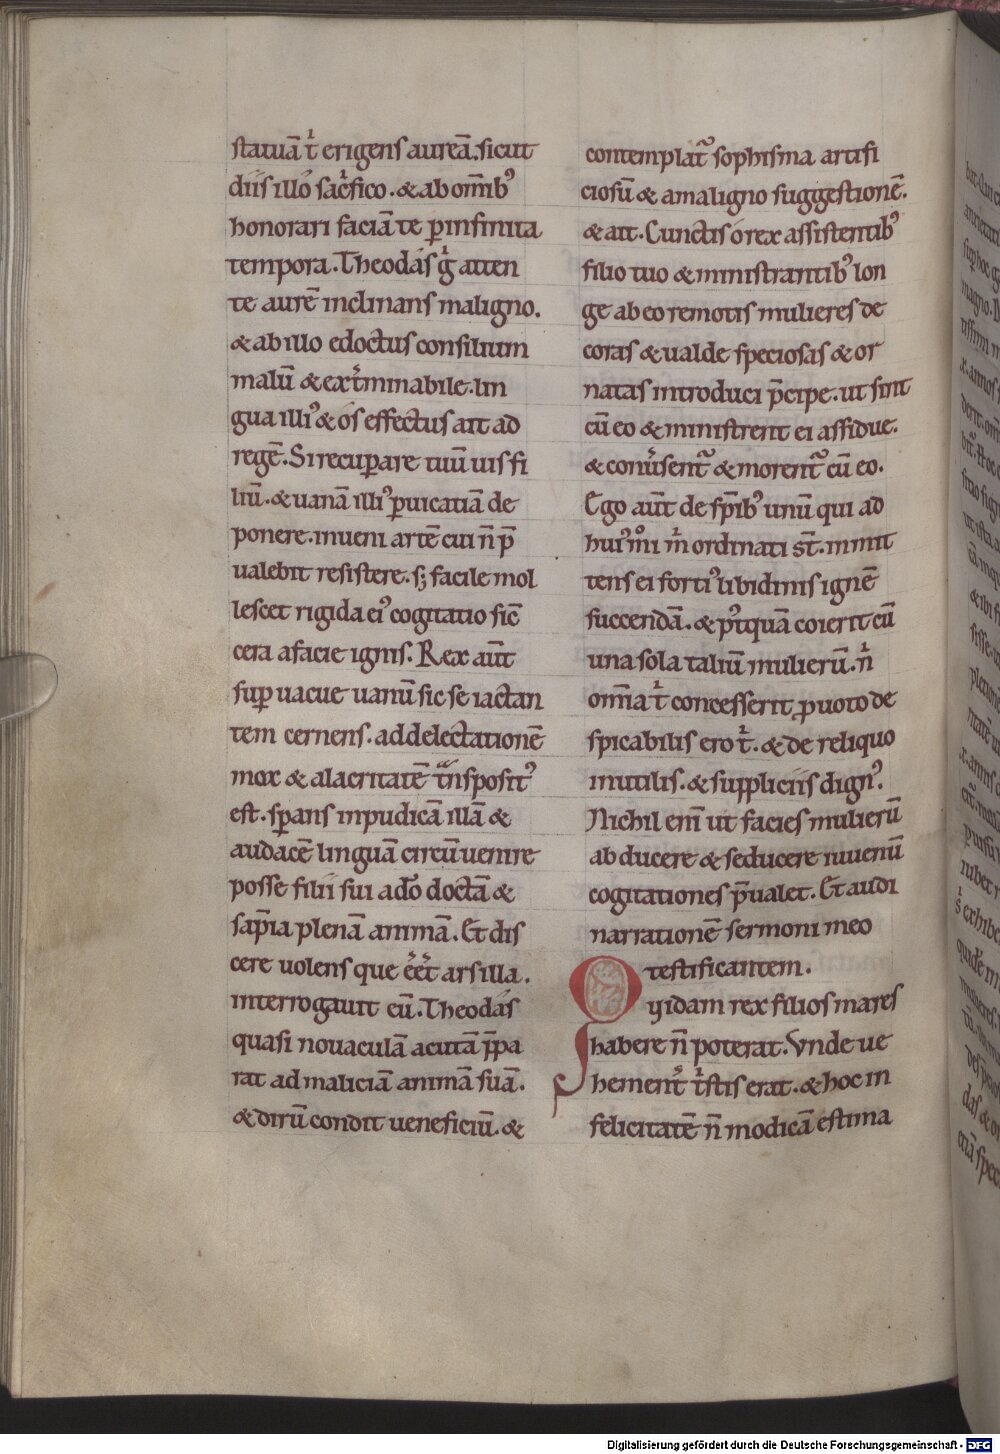 statuā t̓ erigens aureā. sicut
diis illo᷒ sac̓fico. & ab om̅ib᷒
honorari faciā te ꝑ infinita
tempora. Theodás g̓ atten
te aurē inclinans maligno.
& ab illo edoctus consilium
malū & ext̓minabile. lin
gua illi᷒ & ós effectus ait ad
regē. Si recuꝑare tuū uis fi
liū. & uanā illi᷒ ꝑuicatiā de
ponere. inueni artē cui n̄ p̄
ualebit resistere. sꝫ facile mol
lescet rigida ei᷒ cogitatio sic̄
cera a facie ignis. Rex aūt
suꝑuacue uanū sic se iactan
tem cernens. ad delectationē
mox & alacritatē tͣnsposit᷒
est. sꝑans inpudicā illā &
audacē linguā circūuenire
posse filii sui a do̅ doctā &
sap̄ia plenā animā. Et dis
cere uolens que eēt ars illa.
interrogauit eū. Theodás
quasi nouaculā acutā p̄pa
rat ad maliciā animā suā.
& dirū condit ueneficiū. &
contemplat᷑ sophisma artifi
ciosū & a maligno suggestionē.
& ait. Cunctis ó rex assistentib᷒
filio tuo & ministrantib᷒ lon
ge ab eo remotis mulieres de
coras & ualde speciosas & or
natas introduci p̄cipe. ut sint
cū eo & ministrent ei assidue.
& conu̓sent᷑ & morent᷑ cū eo.
Ego aūt de sp̄ib᷒ unū qui ad
hui᷒mͦi m̓ ordinati st̄. inmit
tens ei forti᷒ libidinis ignē
succendā. & p᷒tquā coierit cū
una sola taliū mulierū. n̓
om̅ia t̓ concesserit ꝓ uoto de
spicabilis ero t̓. & de reliquo
inutilis. & suppliciis dign᷒.
Nichil enī ut facies mulierū
abducere & seducere iuuenū
cogitationes p̄ualet. Et audi
narrationē sermoni meo
testificantem.
Quidam rex filios mares
habere n̄ poterat. Vnde ue
hement̓ t̓stis erat. & hoc in
felicitatē n̄ modicā estima